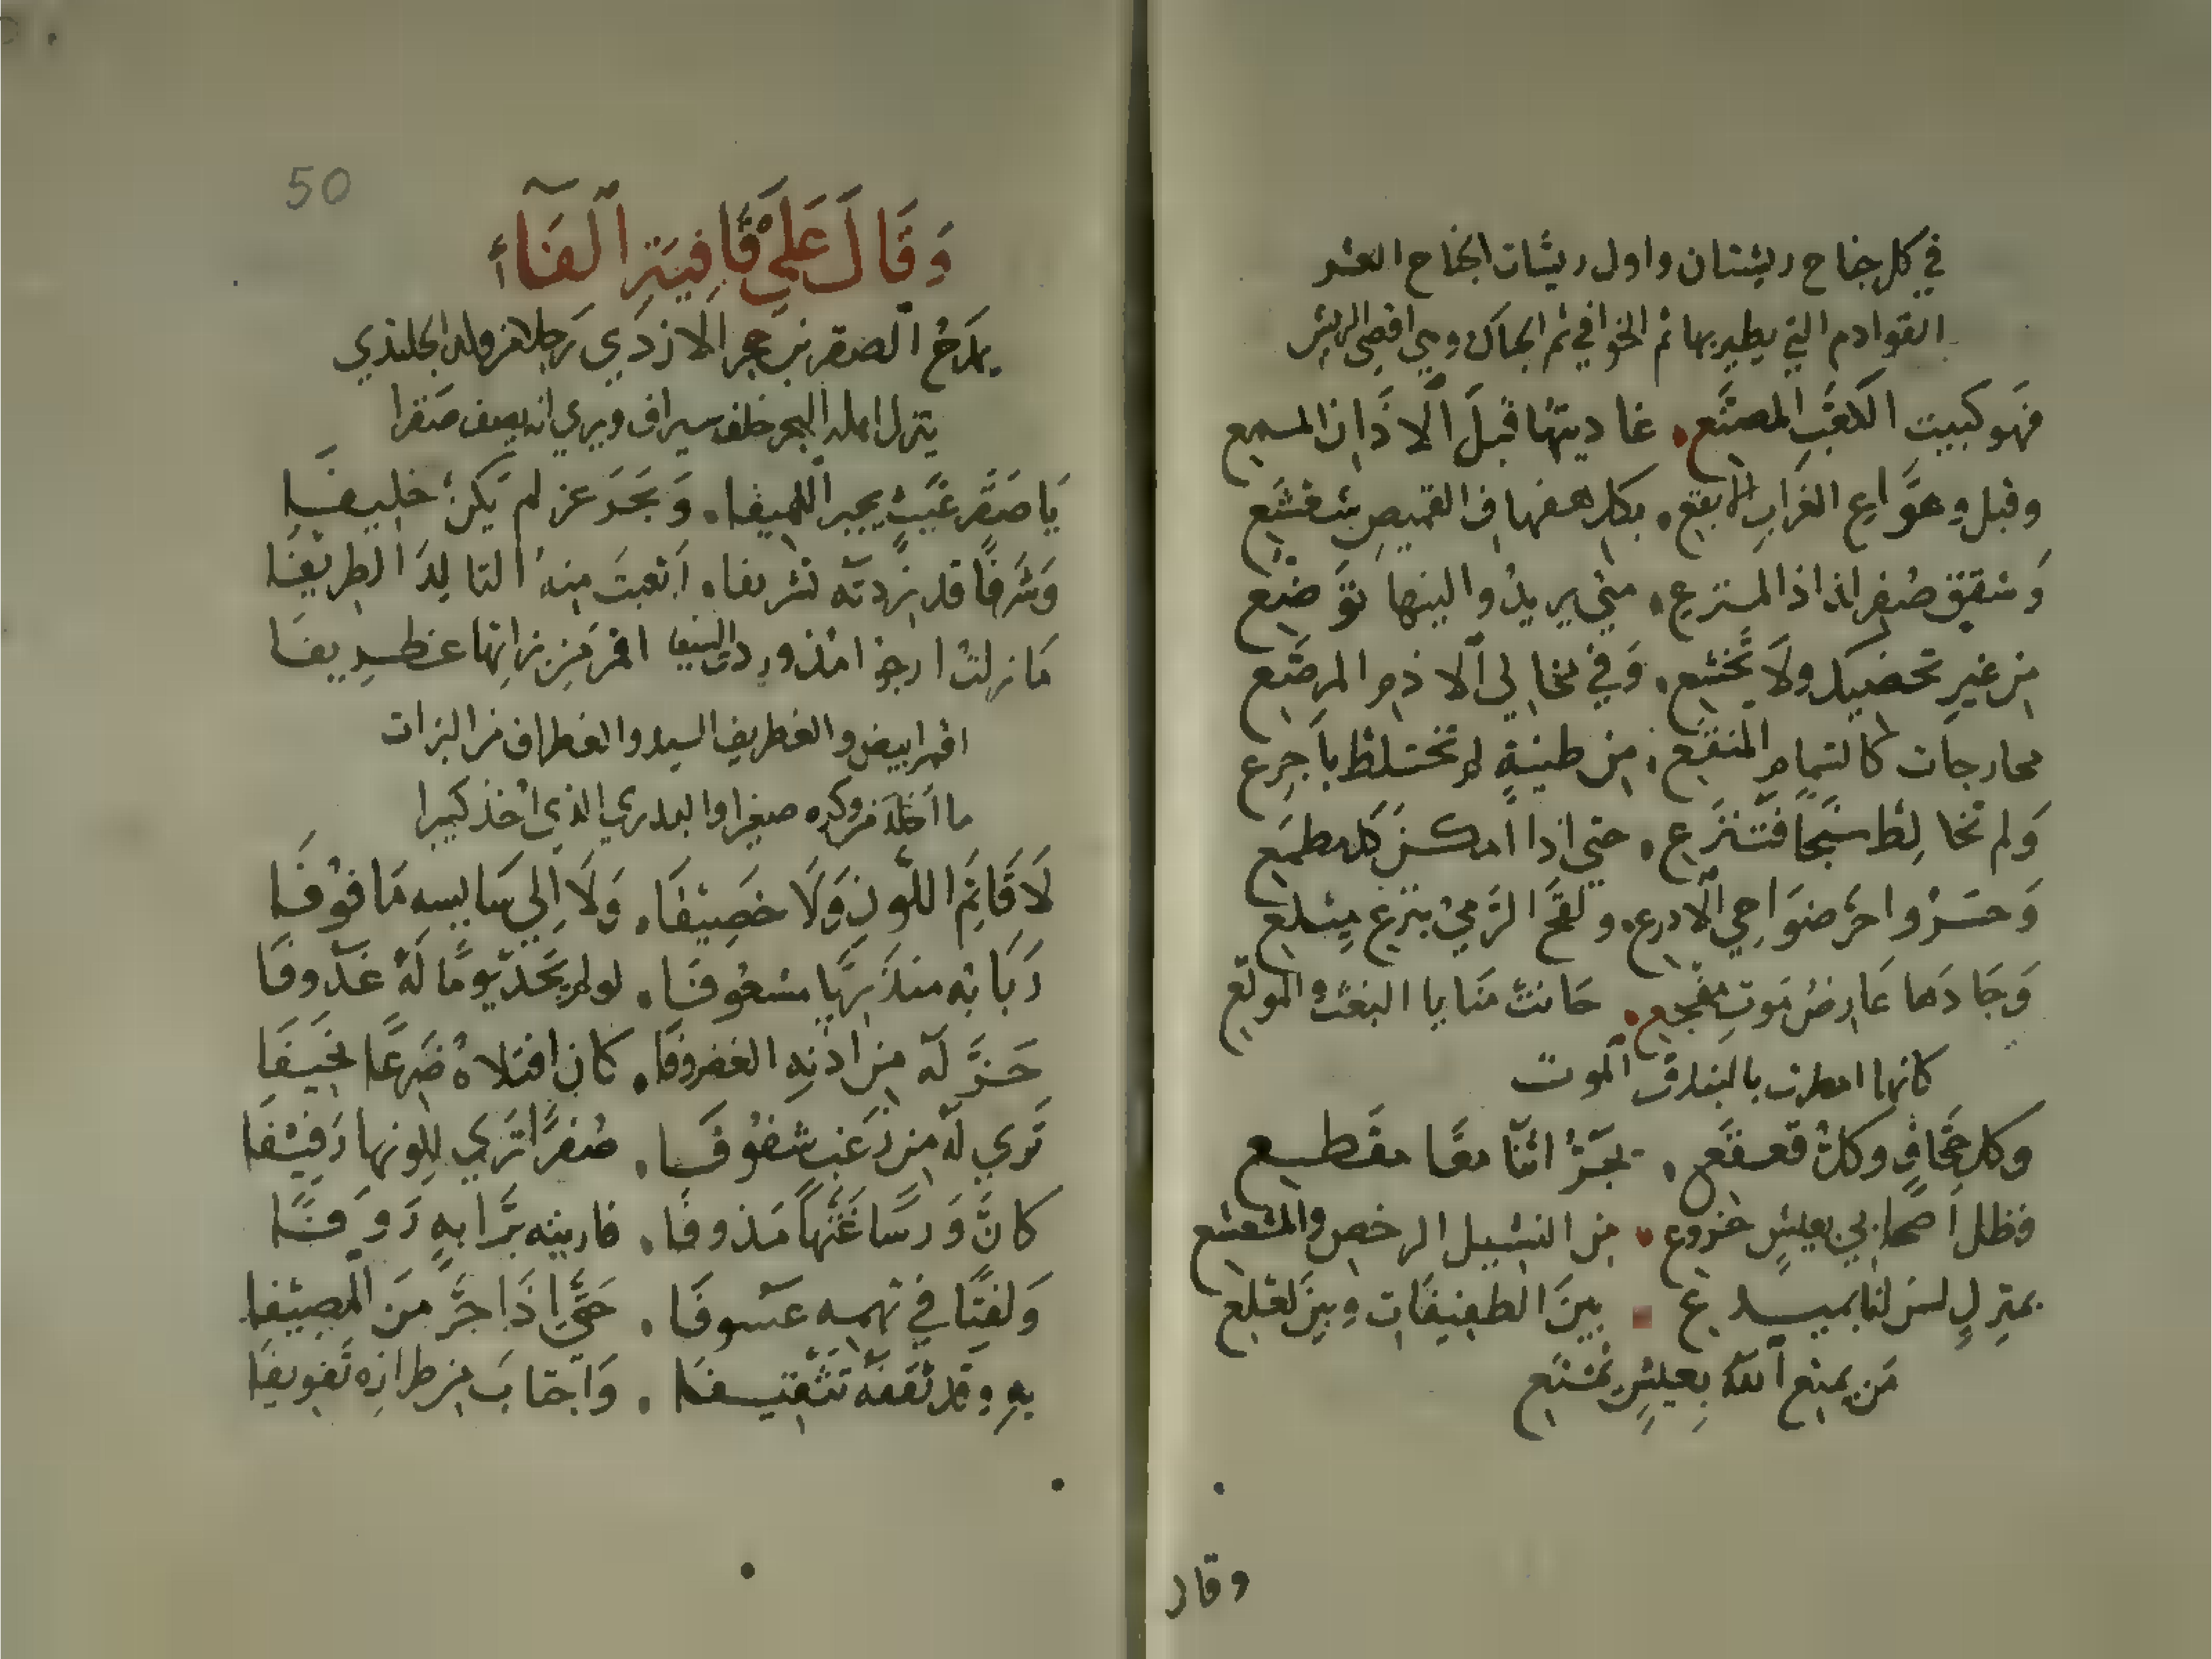 في كل جناح ريشتان واول ريشات الجناح العشر
القوادم التي يطير بها ثم الخوافي ثم وهي اقصى الريش
فَهو كبيت الكعب المصنَّع. غاديتها قبلَ الاذَان المسمع
وقبل وعوَاع الغراب الابقع. بكل هفهاف القميص شعشع
وَشقق صُفر المنزع. متى يريدوا لينها
من غير تحضيد ولا تخشع. وَفي مخالي الادم المرصع
مدارجات كالتمام المنقع. من طينةٍ لم تختلط باجرع
وَلم تخالط سَبخًا فتنزع. حتى اذا امكن كل مطمع
وَحسَرُوا عن ضوَاحي الاذرع. ولقح الرّمي بنزع
وَجَادهَا عَارض مَوتٍ مفجع. حَانت مَنايا البغث والموقع
كانها امطرت بالبندق الموت
وكل وكل قعقع.
فظل اصحابي بعيشٍ خروع. من النشيل الرخص والمشعشع
بمنزلٍ لنا. بينَ الطفيفات وبين لعلع
مَن يمتع الله بعيشٍ يمتع
وقال
50
وَقَالَ عَلَى قَافِيَةِ الفَاء
يمدَحُ الصقر بن الازدي رَجلا من ولد الجلندي
ينزل البحر خلف سيراف ويري انه يصف صَقرا
يَا صَقر يجير اللهيفا. وَيَجدَ عز لم يَكن خليفَا
وَشَرفًا قد زدته تشريفا. اتعبتَ منهُ التالِدَ الطريفَا
مَا زلت ارجو امذ وردت السيفا اقمر مِن بزاتها غطريفَا
اقمر ابيض والغطريف السيد والغطراف من البزات
ما اخذ من وكره صغيرا والبدري الذي اخذ كبيرا
لَا قَاتِمَ اللّون وَلَا خَصِيفَا. وَلَا اِلي سَابسه مَا فوُفَا
رَبَابه مشعُوفَا. لو لم يَجد يومًا لَهُ غدوفَا
حَزَّ لَه من اذنه الغضروفَا. كان افتلاهُ ضَرعًا نحيَفَا
تَري لَهُ مِن زَغبٍ شفُوفَا. صُفرًا تَري للونها رَفيفَا
كانَّ وَرسًا مَذوفَا.
وَلفتًا في عسوفَا. حَتّى اِذَا جرَّ مِنَ المصيفا
بهِ وقد ثقفهُ تثقيفَا. وَاجتابَ من طرازه تَفويفَا